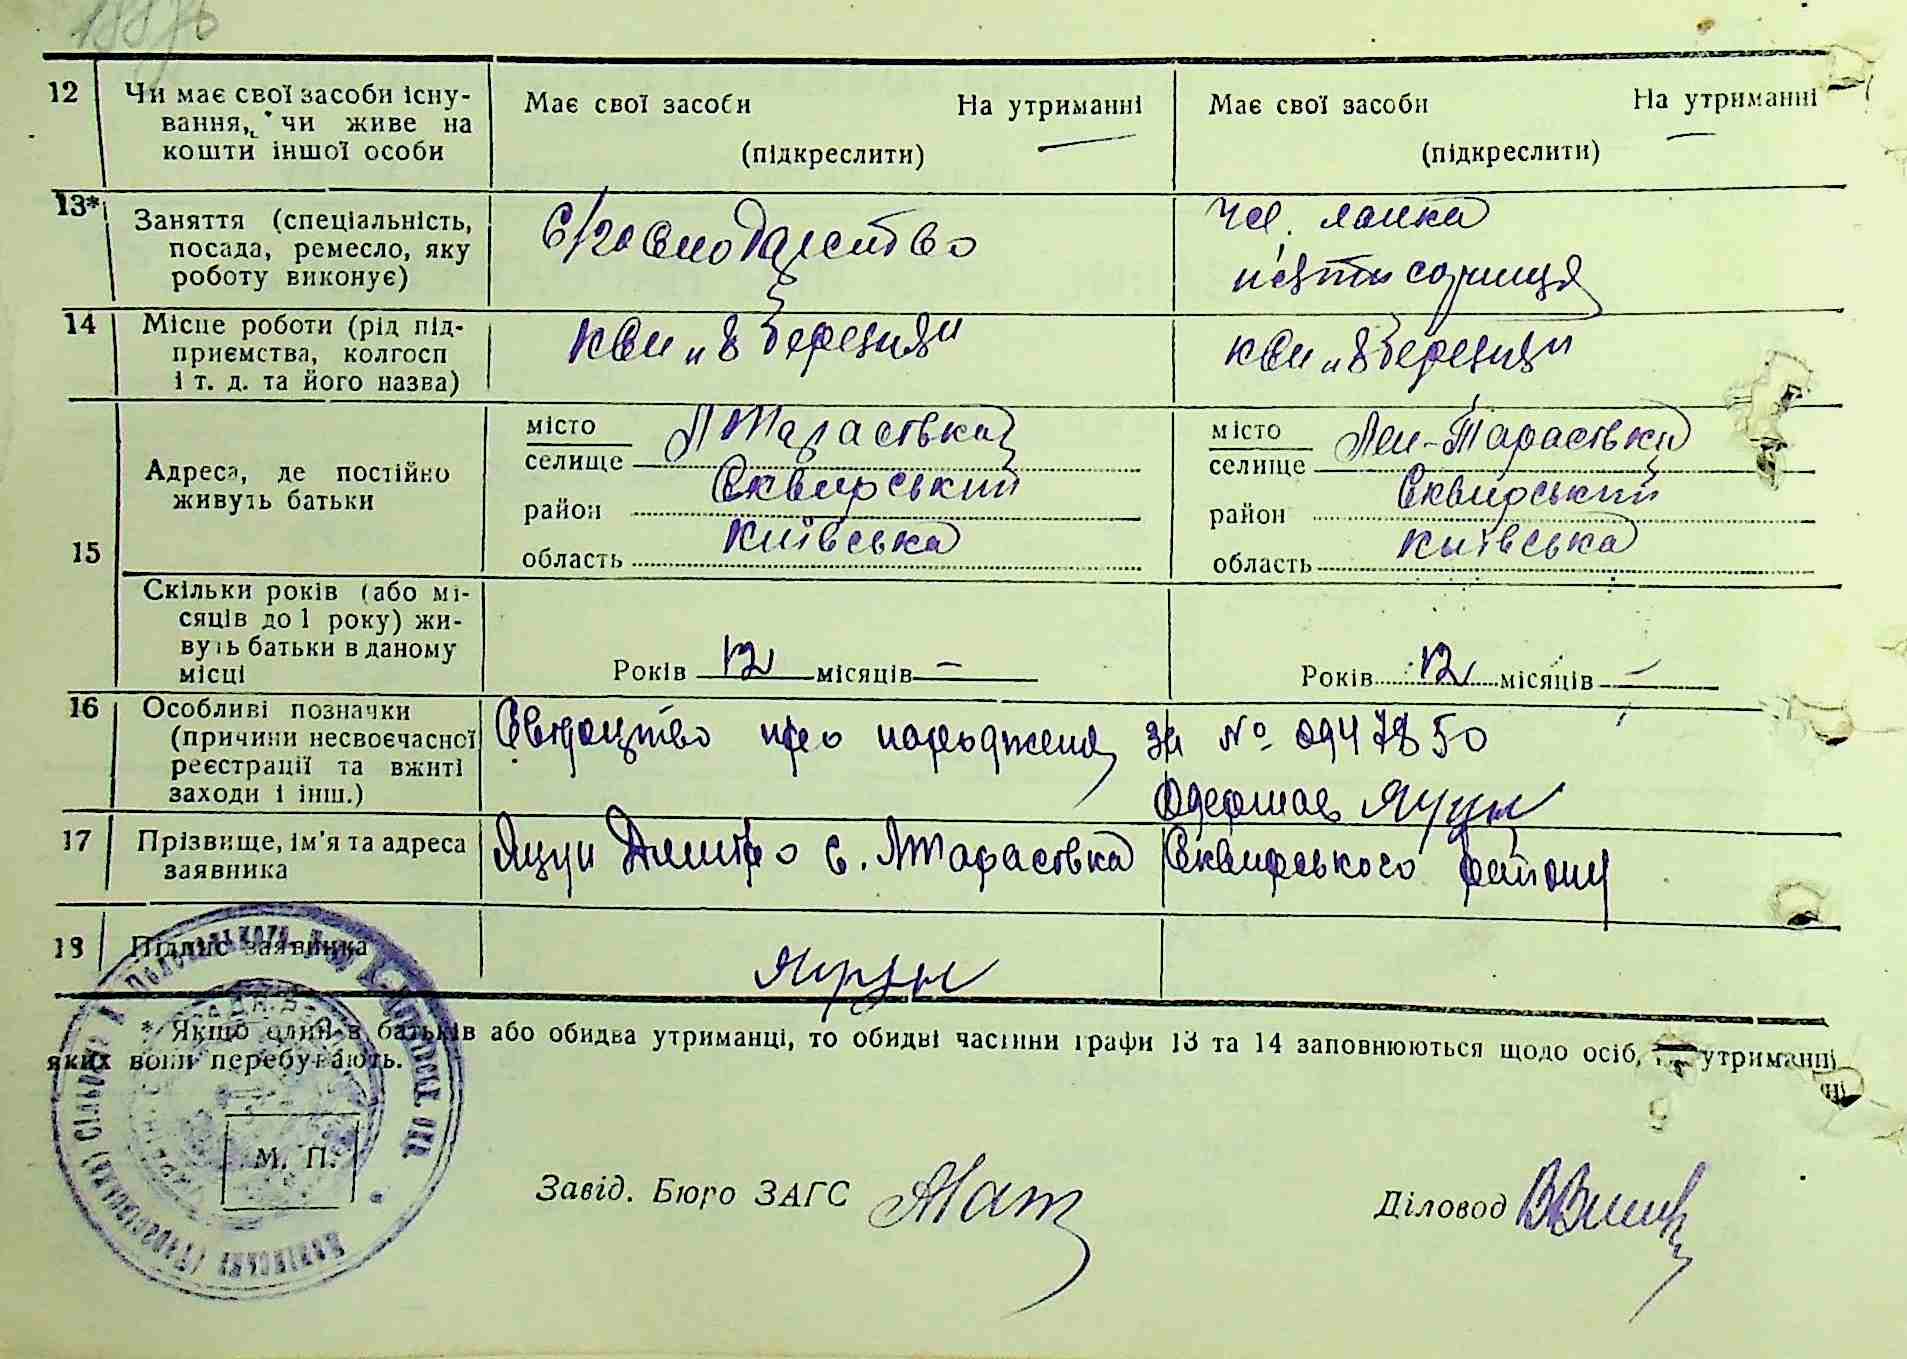 12 Чи має свої засоби існу-
вання, чи живе на
кошти іншої особи
Має свої засоби На утриманні
(підкреслити)
Має свої засоби На утриманні
(підкреслити)
13* Заняття (спеціальність,
посада, ремесло, яку
роботу виконує)
С/господарство
чл. ланка
п'ятисотниця
14 Місце роботи (рід під-
приємства, колгосп
і т. д. та його назва)
"8 березня"
"8 березня"
15 Адреса, де постійно
живуть батьки
місто
селище Л Тарасовка
район Сквирський
область Київська
місто
селище Лен-Тарасовка
район Сквирський
область Київська
Скільки років (або мі-
сяців до 1 року) жи-
вуть батьки в даному
місці
Років 12 місяців —
Років 12 місяців —
16 Особливі позначки
(причини несвоєчасної
реєстрації та вжиті
заходи і інш.)
Свідоцтво про народження за № 0947850
Одержав
17 Прізвище, ім'я та адреса
заявника
Яцун Дмитро с. ЛТарасовка Сквирського району
18 Підпис заявника
* Якщо один з батьків або обидва утриманці, то обидві частини графи 13 та 14 заповнюються щодо осіб, утриманні
яких вони перебувають.
М. П.
Завід. Бюро ЗАГС
Діловод